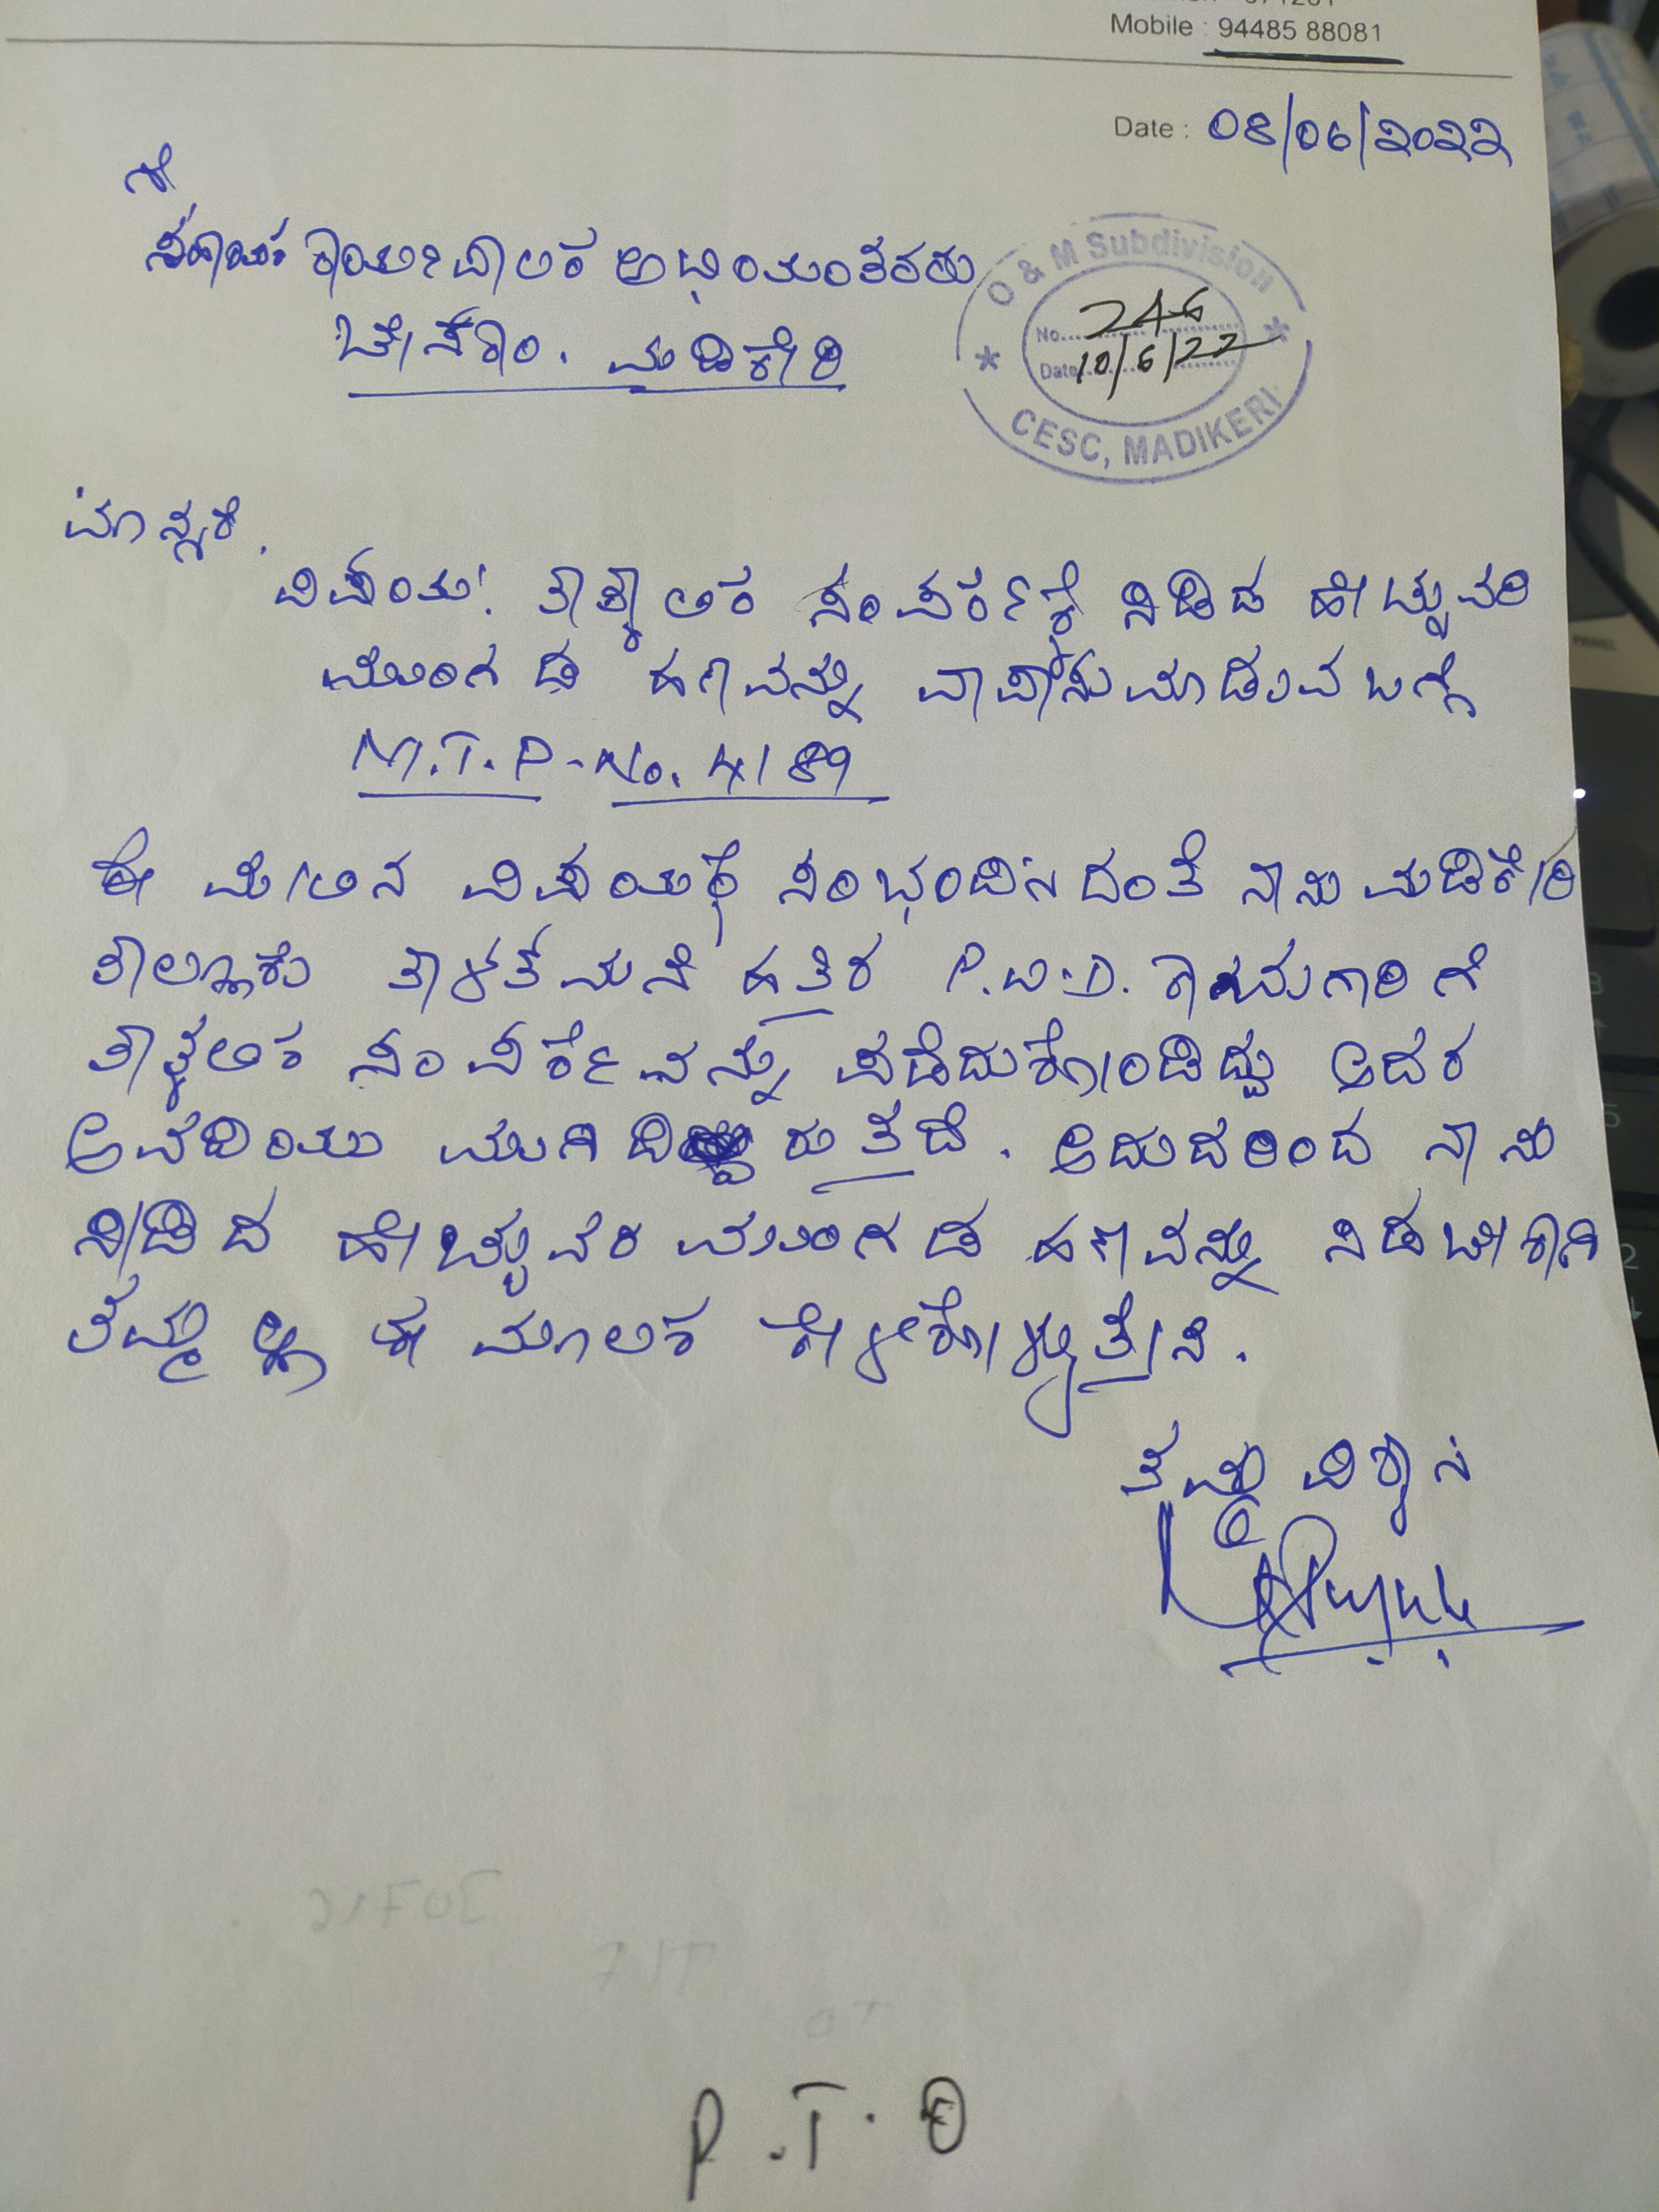 Mobile : 94485 88081
Date : 08/06/2022
ಕೆ
ಸಹಾಯಕ ಕಾರ್ಯಪಾಲಕ ಅಭಿಯಂತರರು
ಚೇಸ್ಕಾಂ. ಮಡಿಕೇರಿ
O & M Subdivision
No. 246
Date 10/6/22
CESC, MADIKERI
ಮಾನ್ಯರೆ,
ವಿಷಯ: ತಾತ್ಕಾಲಿಕ ಸಂಪರ್ಕಕ್ಕೆ ನಿಡಿದ ಹೇಚ್ಚುವರಿ
ಮುಂಗಡ ಹಣವನ್ನು ವಾಪಾಸುಮಾಡುವ ಬಗ್ಗೆ
M.T.P-No. 4189
ಈ ಮೇಲಿನ ವಿಷಯಕ್ಕೆ ಸಂಭಂದಿಸಿದಂತೆ ನಾನು ಮಡಿಕೇರಿ
ತಾಲ್ಲೂಕು ತಾಳತ್ಮನೆ ಹತ್ತಿರ P.W.D. ಕಾಮಗಾರಿಗೆ
ತಾತ್ಕಲಿಕ ಸಂಪರ್ಕವನ್ನು ಪಡೆದುಕೋಂಡಿದ್ದು ಅದರ
ಅವದಿಯು ಮುಗಿದಿರುತ್ತದೆ. ಆದುದರಿಂದ ನಾನು
ನೀಡಿದ ಹೇಚ್ಚುವರಿ ಮುಂಗಡ ಹಣವನ್ನು ನಿಡಬೇಕಾಗಿ
ತಮ್ಮಲ್ಲಿ ಈ ಮೂಲಕ ಕೇಳಿಕೋಳ್ಳುತ್ತೇನೆ.
ತಮ್ಮ ವಿಶ್ವಾಸಿ
P.T.O